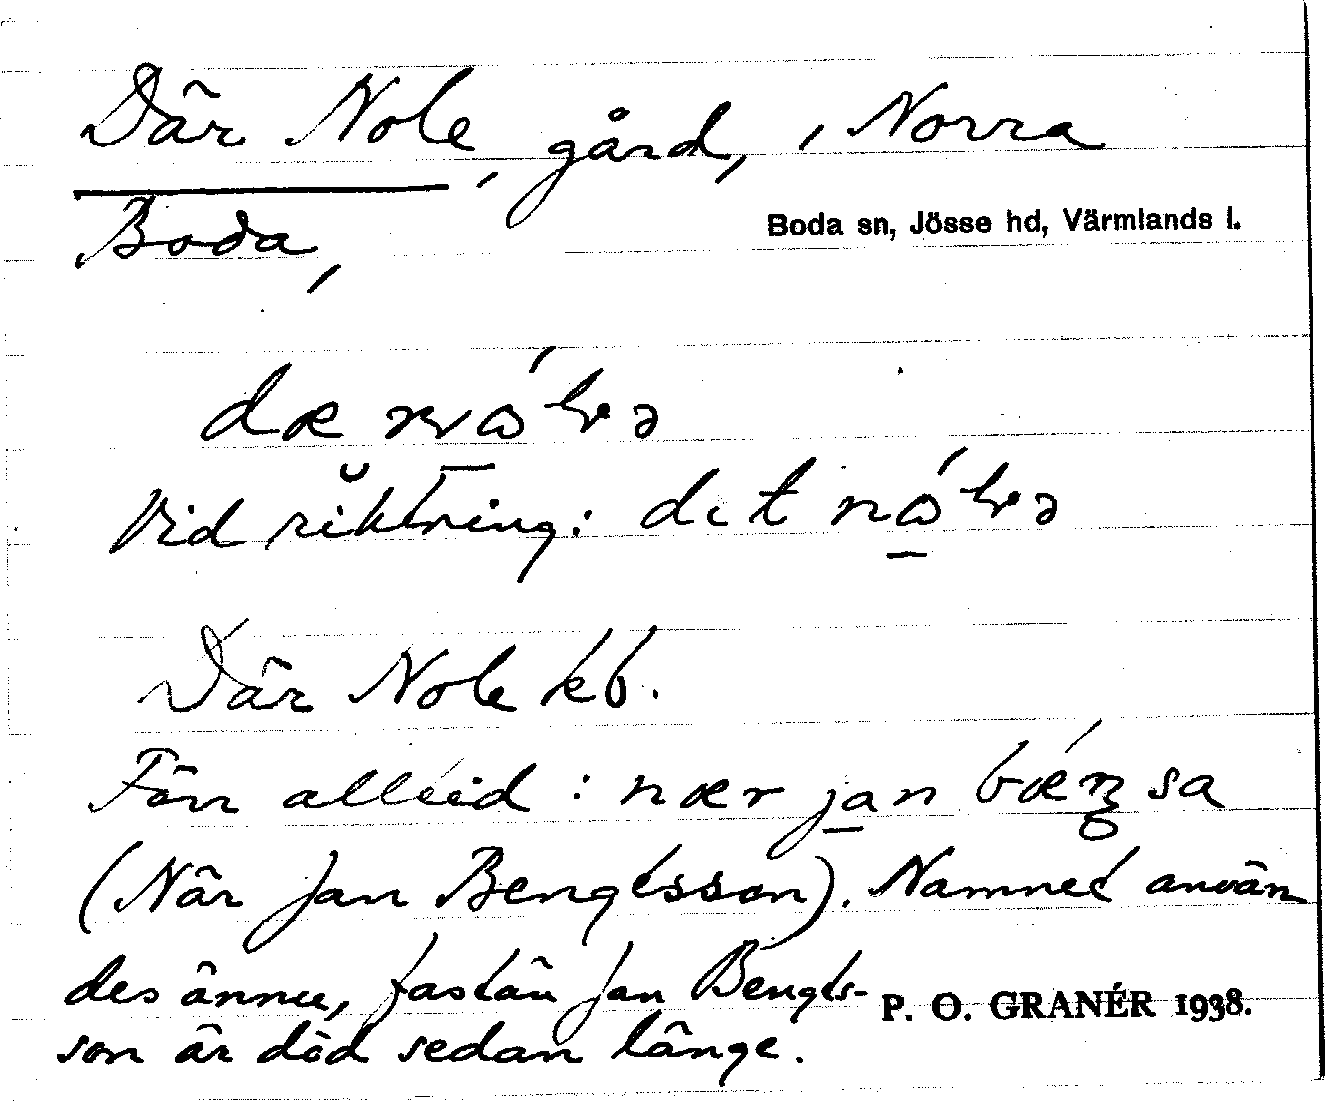 Där Nole, gård, i Norra
Boda,
Boda sn, Jösse hd, Värmlands l.
Vid riktning:
Där Nole kb.
Förr alltid: nær jan
(När Jan Bengtsson). Namnet använ
des ännu, fastän Jan Bengts-
son är död sedan länge.
P. O. GRANÉR 1938.